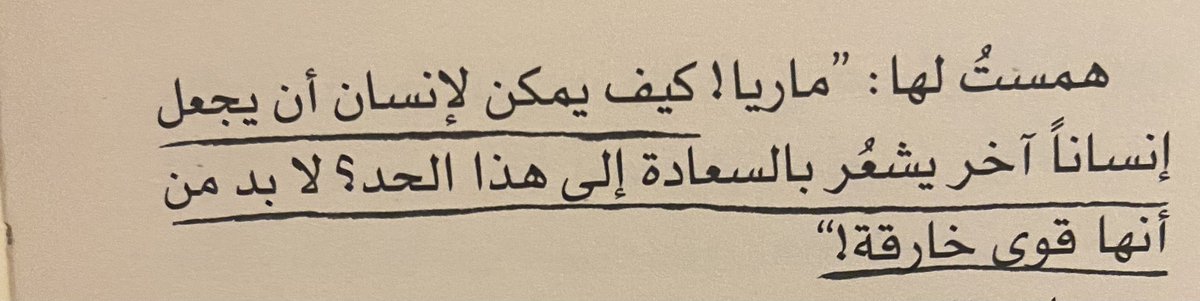 همستُ لها: ”ماريا! كيف يمكن لإنسان أن يجعل
إنساناً آخر يشعُر بالسعادة إلى هذا الحد؟ لا بد من
أنها قوى خارقة!“